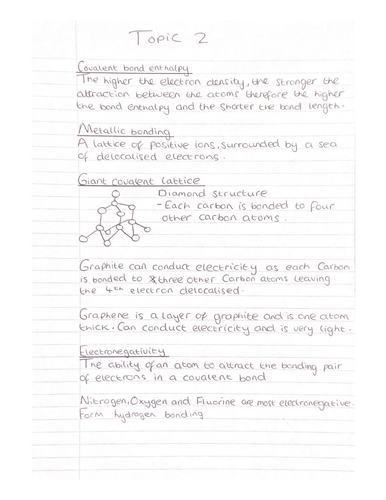 Topic 2
Covalent bond enthalpy
The higher the electron density, the stronger the
attraction between the atoms therefore the higher
the bond enthalpy and the shorter the bond length.
Metallic bonding
A lattice of positive ions, surrounded by a sea
of delocalised electrons.
Giant covalent lattice
Diamond structure
- Each carbon is bonded to four
other carbon atoms.
Graphite can conduct electricity as each Carbon
is bonded to three other Carbon atoms leaving
the 4th electron delocalised.
Graphene is a layer of graphite and is one atom
thick. Can conduct electricity and is very light.
Electronegativity
The ability of an atom to attract the bonding pair
of electrons in a covalent bond
Nitrogen, Oxygen and Fluorine are most electronegative.
Form hydrogen bonding